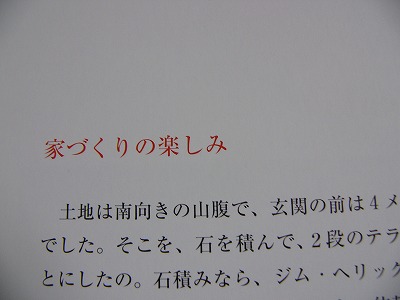 家づくりの楽しみ
土地は南向きの山腹で、玄関の前は4メ
でした。そこを、石を積んで、2段のテラ
とにしたの。石積みなら、ジム・ヘリック